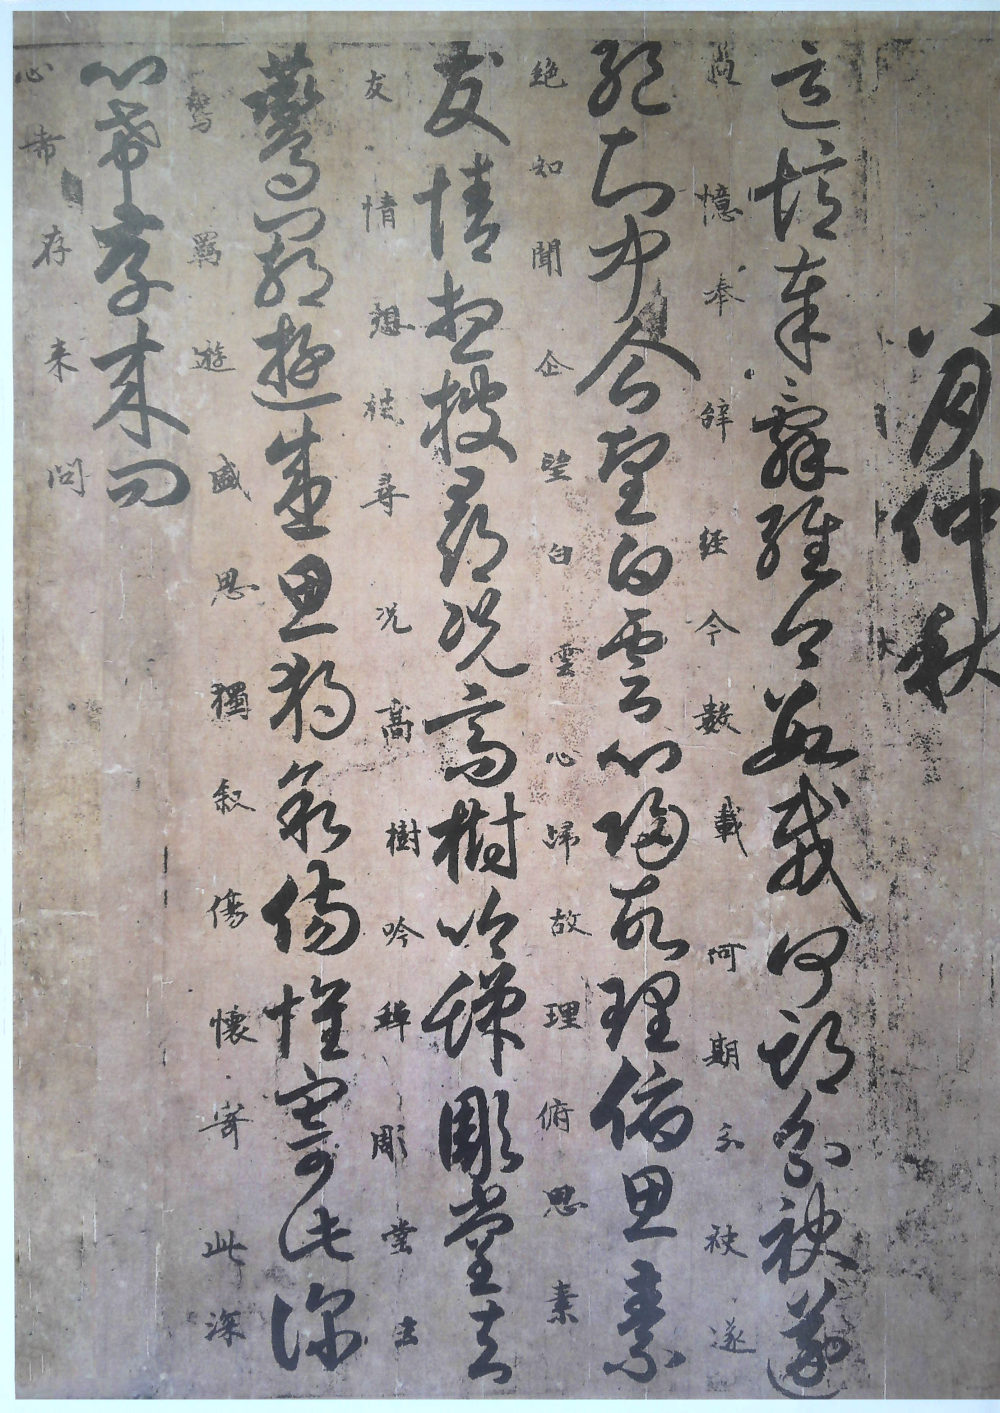 八月仲秋
大
憶奉辭經今數載何期分袂遂
高憶奉辞経今數載何期分袂遂
絶知聞企望白雲心歸故理俯思素
絶知聞企望白雲心歸故理俯思素
友情想披尋況高樹吟蟬彫堂去
友情想披尋况高樹吟蟬彫堂去
鷰羈遊盛思獨叙傷懷寄此深
鷰羈遊盛思獨叙傷懷寄此深
心希存来問
心希存来問